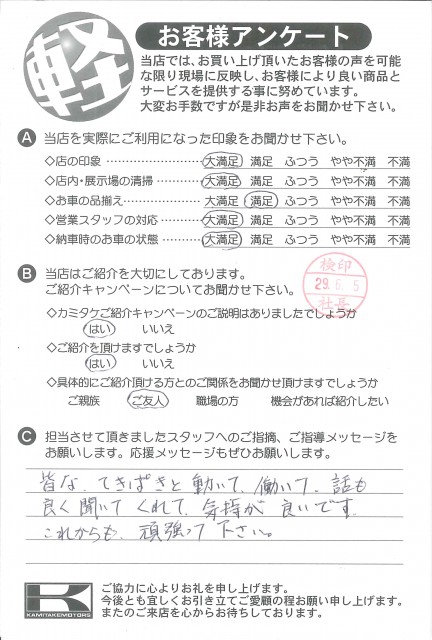 軽
お客様アンケート
当店では、お買い上げ頂いたお客様の声を可能
な限り現場に反映し、お客様により良い商品と
サービスを提供する事に努めています。
大変お手数ですが是非お声をお聞かせ下さい。
A 当店を実際にご利用になった印象をお聞かせ下さい。
◇店の印象 ………………… 大満足 満足 ふつう やや不満 不満
◇店内・展示場の清掃………… 大満足 満足 ふつう やや不満 不満
◇お車の品揃え……………… 大満足 満足 ふつう やや不満 不満
◇営業スタッフの対応………… 大満足 満足 ふつう やや不満 不満
◇納車時のお車の状態………… 大満足 満足 ふつう やや不満 不満
B 当店はご紹介を大切にしております。
ご紹介キャンペーンについてお聞かせ下さい。
検印
29.6.5
社長
◇カミタケご紹介キャンペーンのご説明はありましたでしょうか
はい いいえ
◇ご紹介を頂けますでしょうか
はい いいえ
◇具体的にご紹介頂ける方とのご関係をお聞かせ頂けますでしょうか
ご親族 ご友人 職場の方 機会があれば紹介したい
C 担当させて頂きましたスタッフへのご指摘、ご指導メッセージを
お願いします。応援メッセージもぜひお願いします。
皆な、てきぱきと動いて、働いて、話も
良く聞いてくれて、気持が良いです。
これからも、頑張って下さい。
K
KAMITAKEMOTORS
ご協力に心よりお礼を申し上げます。
今後とも宜しくお引き立てご愛顧の程お願い申し上げます。
またのご来店を心からお待ちしております。